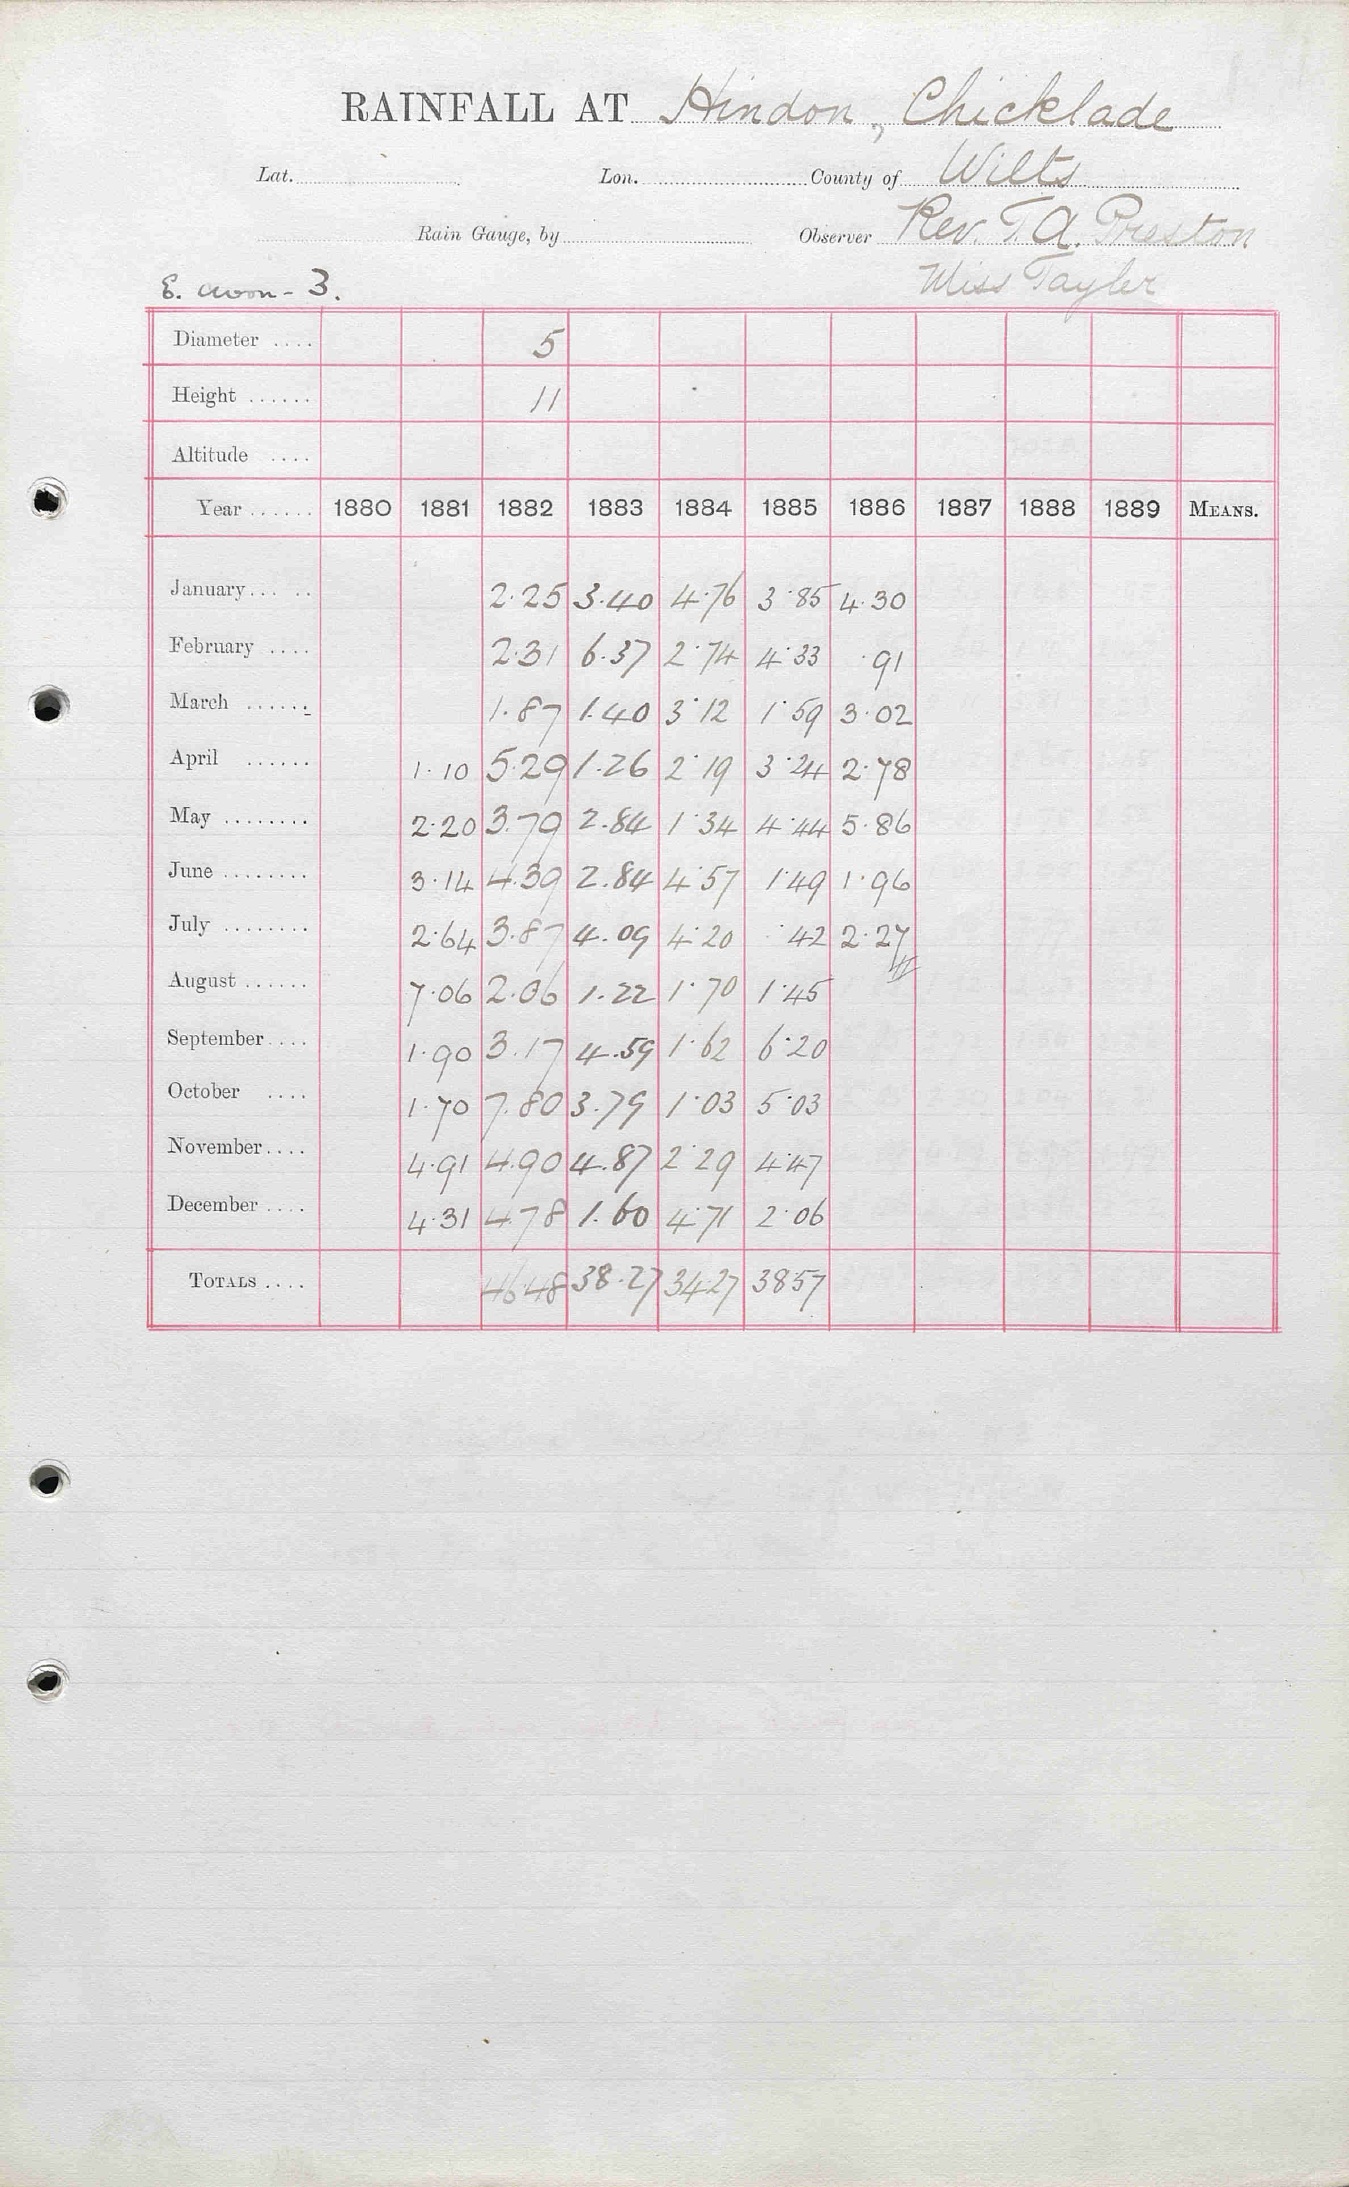 RAINFALL AT Hindon, Chicklade
Lat. Lon. County of Wilts
Rain Gauge, by Observer Rev. T. A. Preston
E. Avon - 3. Miss Tayler
Diameter .... 5
Height ...... 11
Altitude ....
Year ...... 1880 1881 1882 1883 1884 1885 1886 1887 1888 1889 MEANS.
January... .. 2.25 3.40 4.76 3.85 4.30
February .... 2.31 6.37 2.74 4.33 .91
March ...... 1.87 1.40 3.12 1.59 3.02
April ...... 1.10 5.29 1.26 2.19 3.24 2.78
May ........ 2.20 3.79 2.84 1.34 4.44 5.86
June ........ 3.14 4.39 2.84 4.57 1.49 1.96
July ........ 2.64 3.87 4.09 4.20 .42 2.27
August ...... 7.06 2.06 1.22 1.70 1.45
September .... 1.90 3.17 4.59 1.62 6.20
October .... 1.70 7.80 3.79 1.03 5.03
November .... 4.91 4.90 4.87 2.29 4.47
December .... 4.31 4.78 1.60 4.71 2.06
TOTALS .... 46.48 38.27 34.27 38.57